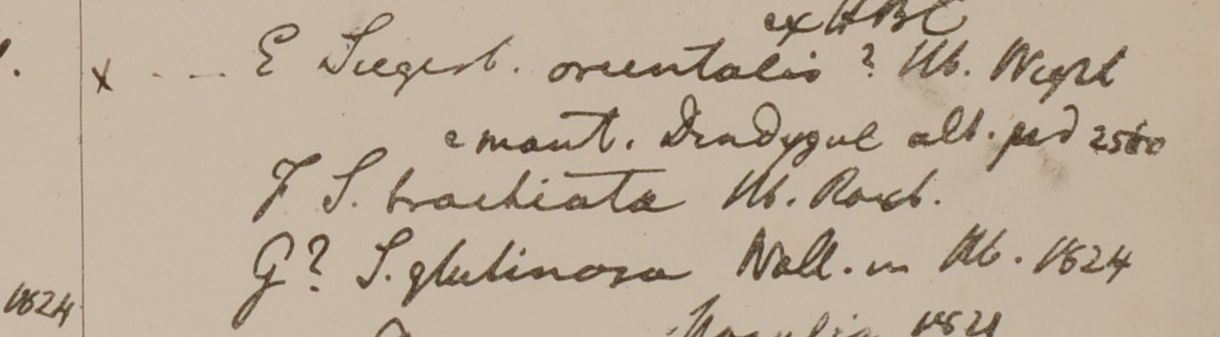 ex HBC
x E Siegesb. orientalis? Hb. Wight
e mont. Dindygul alt. ped 2500
F S. brachiata Hb. Roxb.
G? S. glutinosa Wall. in Hb. 1824
1824
1821